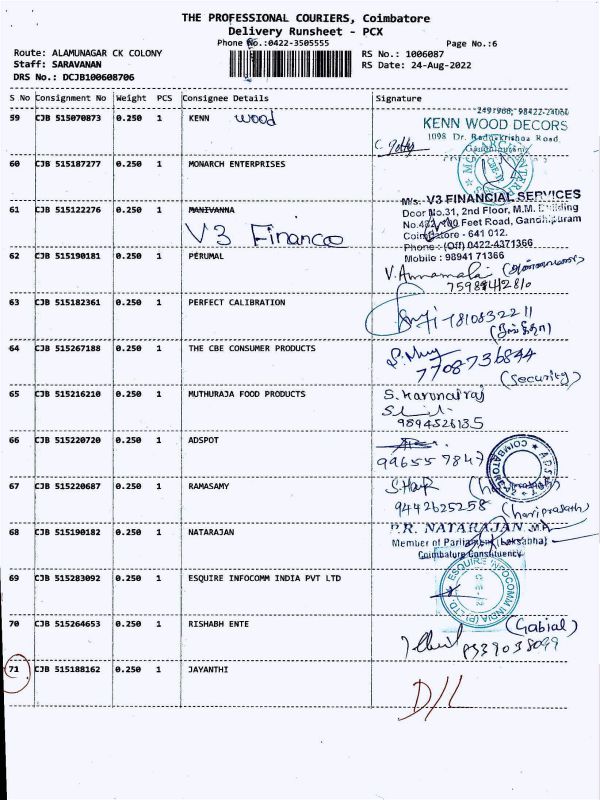 THE PROFESSIONAL COURIERS, Coimbatore
Delivery Runsheet - PCX
Phone No.:0422-3505555
Page No.:6
Route: ALAMUNAGAR CK COLONY
Staff: SARAVANAN
DRS No.: DCJB100608706
RS No.: 1006087
RS Date: 24-Aug-2022
S No Consignment No Weight PCS Consignee Details Signature
59 CJB 515070873 0.250 1 KENN wood
KENN WOOD DECORS
1098 Dr. Radhakrishna Road,
60 CJB 515187277 0.250 1 MONARCH ENTERPRISES
61 CJB 515122276 0.250 1 MANIVANNA
V3 Finance
M/s. V3 FINANCIAL SERVICES
Door No.31, 2nd Floor, M.M. Building
Feet Road, Gandhipuram
Coimbatore - 641 012.
Phone : (Off) 0422-4371366
Mobile : 98941 71366
62 CJB 515190181 0.250 1 PERUMAL
V. Annamalai (அண்ணாமலை)
63 CJB 515182361 0.250 1 PERFECT CALIBRATION
7810832211
64 CJB 515267188 0.250 1 THE CBE CONSUMER PRODUCTS
7708736844
(Security)
65 CJB 515216210 0.250 1 MUTHURAJA FOOD PRODUCTS
S. Karunairaj
9894526135
66 CJB 515220720 0.250 1 ADSPOT
9965557847
67 CJB 515220687 0.250 1 RAMASAMY
9442625258 (hariprasath)
68 CJB 515190182 0.250 1 NATARAJAN
P.R. NATARAJAN M.A.
Member of Parliament (Loksabha)
Coimbatore Constituency
69 CJB 515283092 0.250 1 ESQUIRE INFOCOMM INDIA PVT LTD
ESQUIRE INFOCOMM INDIA (P) LTD
70 CJB 515264653 0.250 1 RISHABH ENTE
(Gabial)
71 CJB 515188162 0.250 1 JAYANTHI
D/L